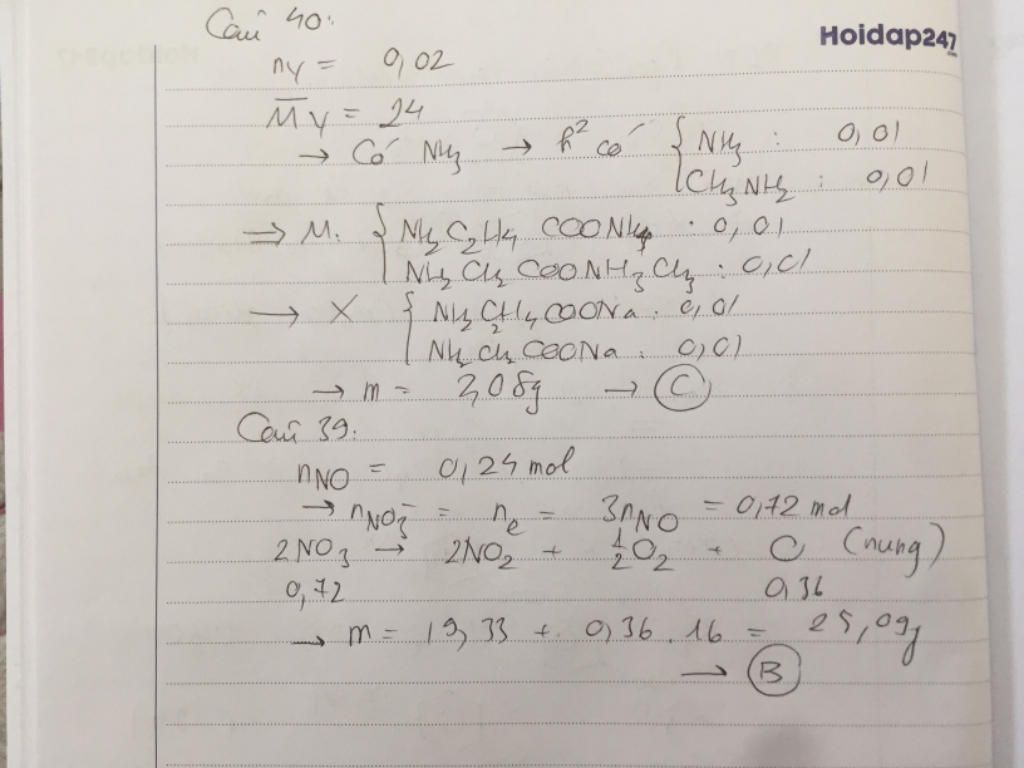 Câu 40:
Hoidap247
nY = 0,02
M̅Y = 24
→ Có NH3 → h² có { NH3 : 0,01
CH3NH2 : 0,01
⇒ M: { NH2C2H4COONH4 : 0,01
NH2CH2COONH3CH3 : 0,01
→ X { NH2C2H4COONa : 0,01
NH2CH2COONa : 0,01
→ m = 2,08g → C
Câu 39:
nNO = 0,24 mol
→ nNO3⁻ = ne = 3nNO = 0,72 mol
2NO3 → 2NO2 + 1/2O2 + O (nung)
0,72 0,36
→ m = 19,33 + 0,36.16 = 25,09g
→ B